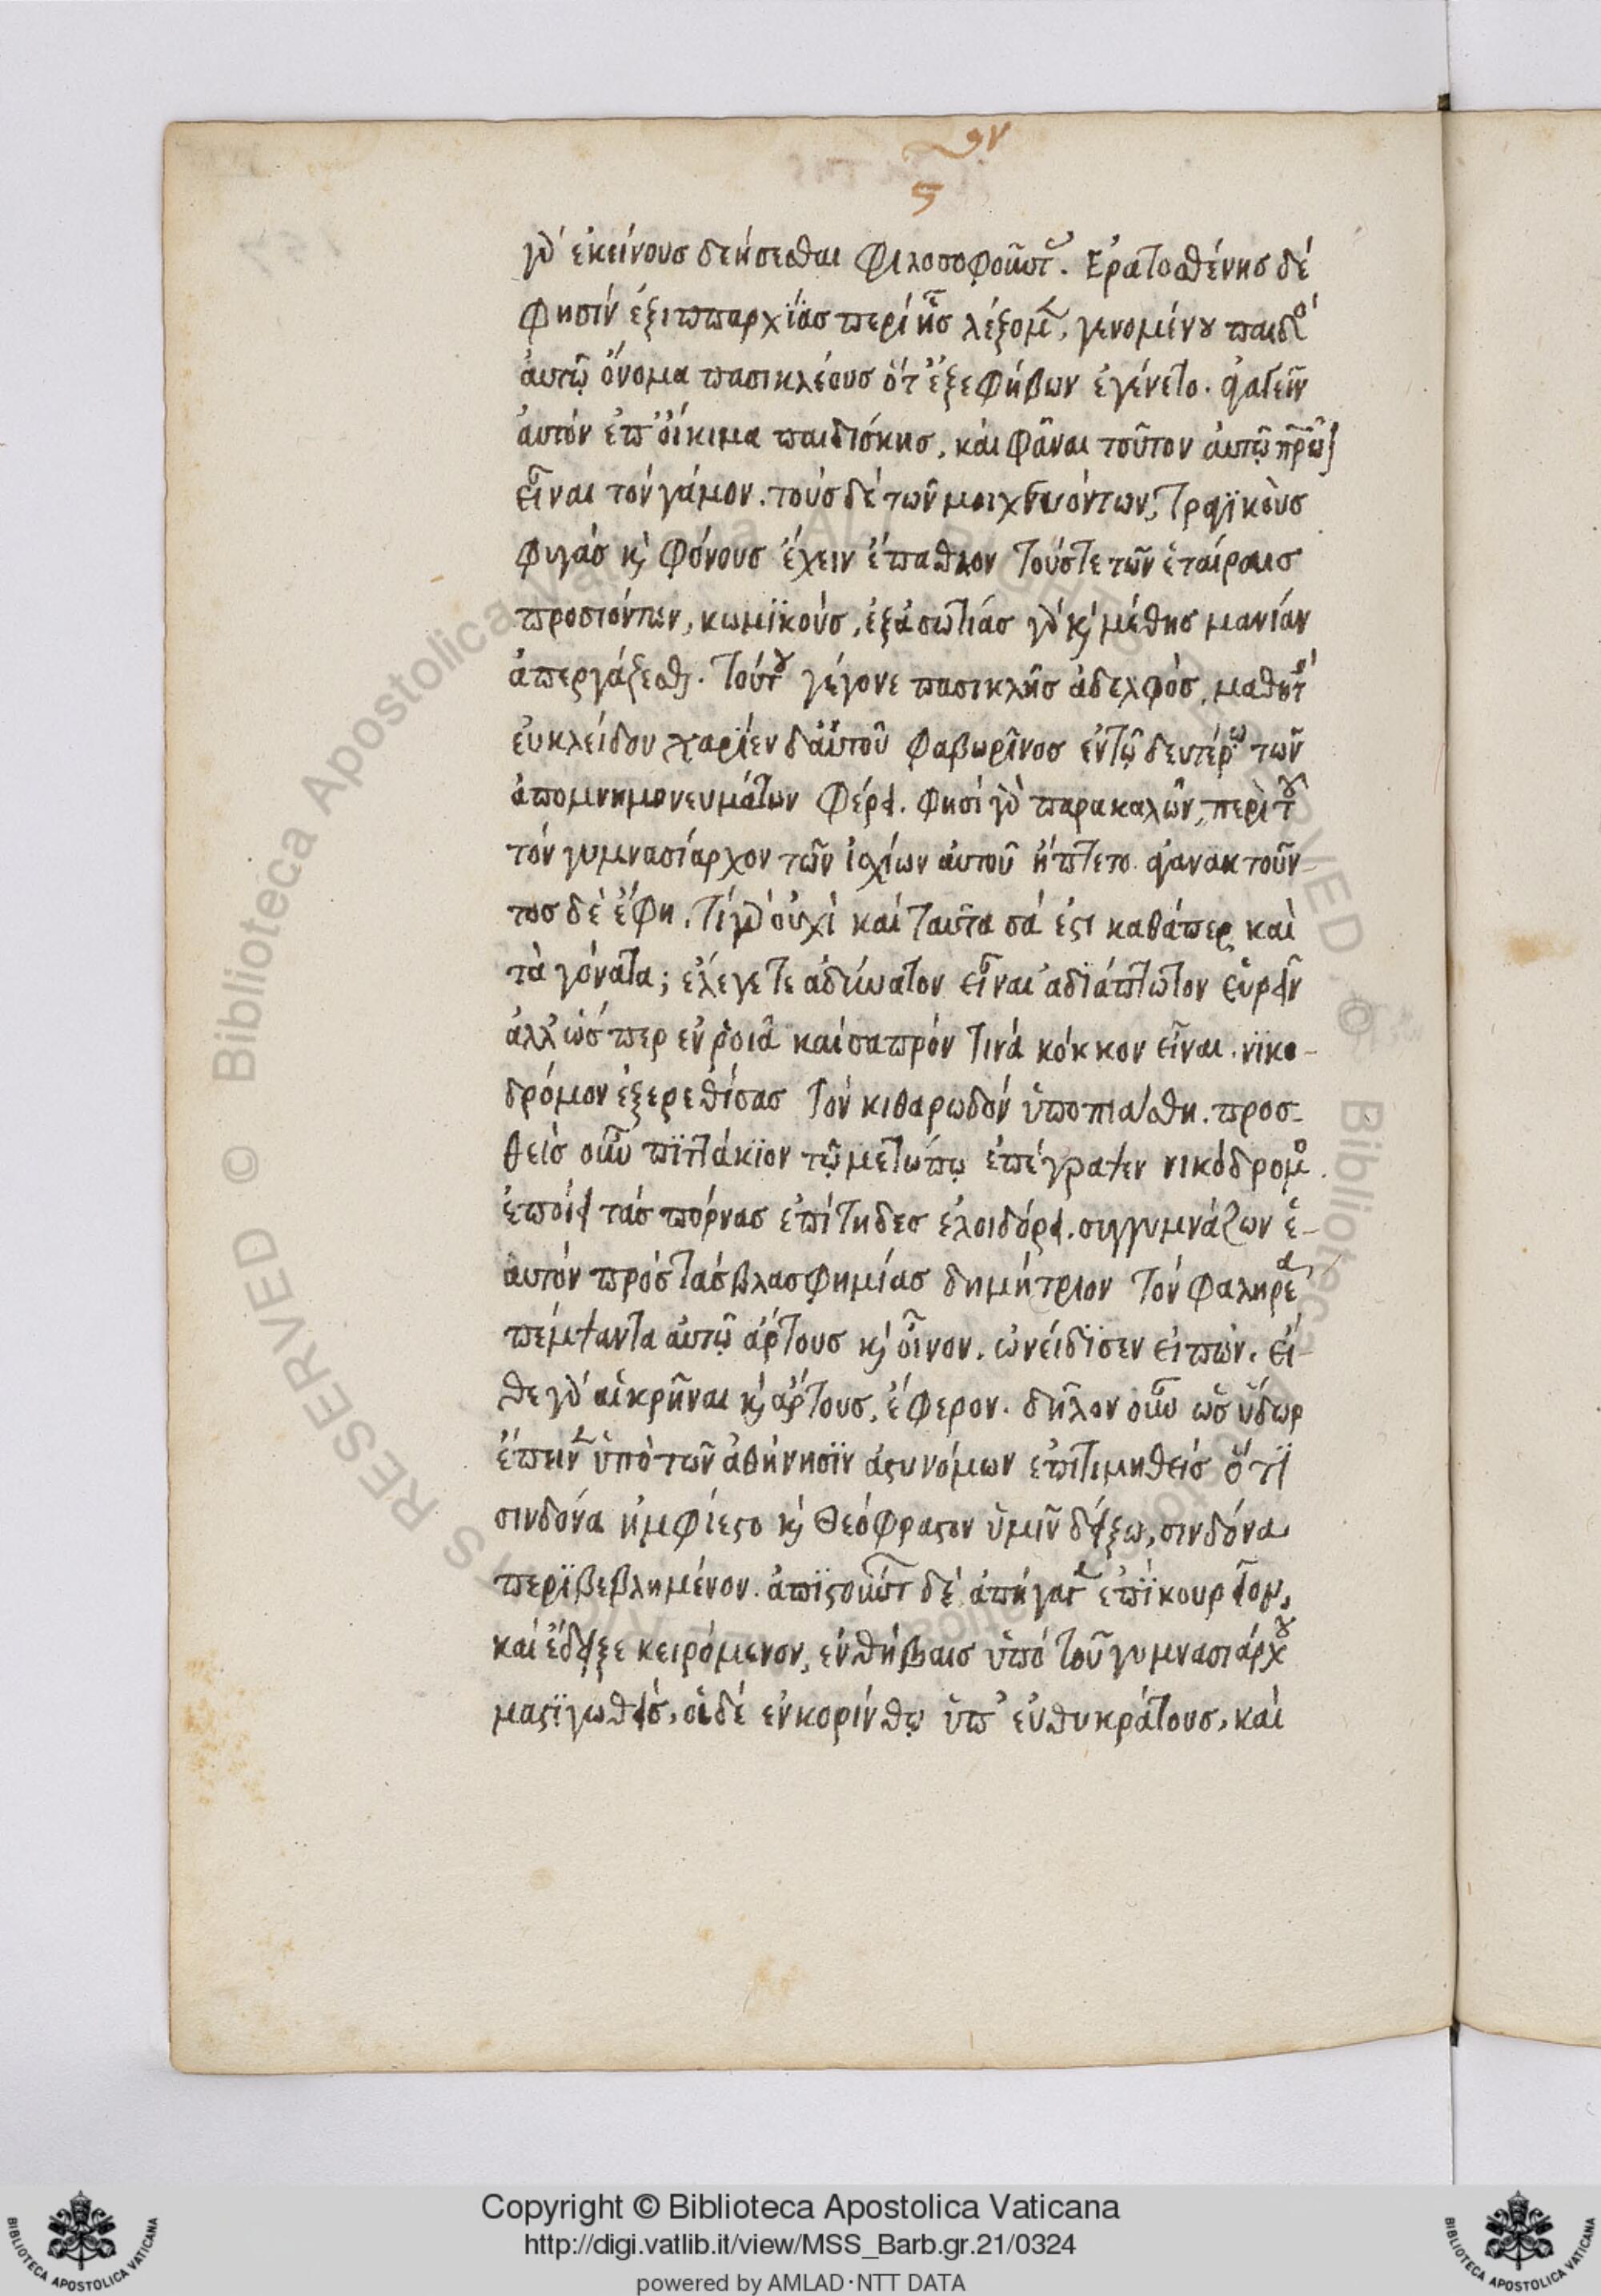 γὰρ ἐκείνους δεήσεσθαι φιλοσοφοῦντες. Ἐρατοσθένης δέ
φησίν ἐξ ἱππαρχΐας περί ἧς λέξομεν, γενομένου παιδός
ἀυτῷ ὄνομα πασικλέους ὅτ' ἐξ εφήβων ἐγένετο. ἀγαγεῖν
ἀυτόν ἐπ' ὄικιμα παιδίσκης, κάι φᾶναι τοῦτον ἀυτῷ πατρῷον
εἶναι τόν γάμον. τούς δέ τῶν μοιχευόντων, τραγϊκοὺς
φυγάς καὶ φόνους ἔχειν ἔπαθλον τούς τε τῶν ἑταίραις
προσιόντων, κωμϊκούς, ἐξ ἀσωτίάς γὰρ καὶ μέθης μανίάν
ἀπεργάζεσθαι. τούτου γέγονε πασικλῆς ἀδελφός, μαθητής
ἐυκλείδου χαρΐεν δ' ἀυτοῦ φαβωρῖνος ἐν τῷ δευτέρω τῶν
ἀπομνημονευμάτων φέρει. φησί γὰρ παρακαλῶν, περὶ του
τόν γυμνασίαρχον τῶν ἰσχίων ἀυτοῦ ἥπτετο ἀγανακτοῦν
τος δὲ ἔφη. τί γὰρ ὀυχὶ καί ταῦτα σά ἐστι καθάπερ καὶ
τὰ γόνατα; ἔλεγε τε αδύνατον εἶναι ἀδϊάπτωτον ἑυρεῖν
ἀλλ' ὥσπερ εν ῥοιᾶ καί σαπρόν τινά κόκκον εἶναι. νϊκο-
δρόμον ἐξερεθίσας τόν κιθαρωδόν ὑποπιάσθη. προσ-
θείς οὖν πϊττάκϊον τῷ μετώπῳ ἐπέγραψεν νικόδρομος
ἐποίει τάς πόρνας ἐπίτηδες ἐλοιδόρει. συγγυμνάζων ἑ-
αυτόν πρός τάς βλασφημίας δημήτριον τόν φαληρέα
πέμψαντα ἀυτῷ ἄρτους καὶ οἶνον. ὠνείδϊσεν ειπών. ἐί-
θε γὰρ ἁι κρῆναι καὶ ἄρτους, ἔφερον. δῆλον οὖν ὡς ὕδωρ
ἔπινεν ὑπὸ τῶν ἀθήνησϊν ἀστυνόμων ἐπιτιμηθείς ὅτϊ
σινδόνα ἠμφίεστο καὶ θεόφραστον ὑμῖν δείξω, σινδόνα
περϊβεβλημένον. ἀπϊστοῦντες δέ ἀπήγαγεν ἐπϊ κουρεῖον,
καί ἔδειξε κειρόμενον, ἐν θήβαις ὑπό τοῦ γυμνασιάρχου
μαστϊγωθείς, ὁι δέ ἐν κορίνθῳ ὑπ' ἐυθυκράτους, καὶ
Copyright © Biblioteca Apostolica Vaticana
http://digi.vatlib.it/view/MSS_Barb.gr.21/0324
powered by AMLAD·NTT DATA